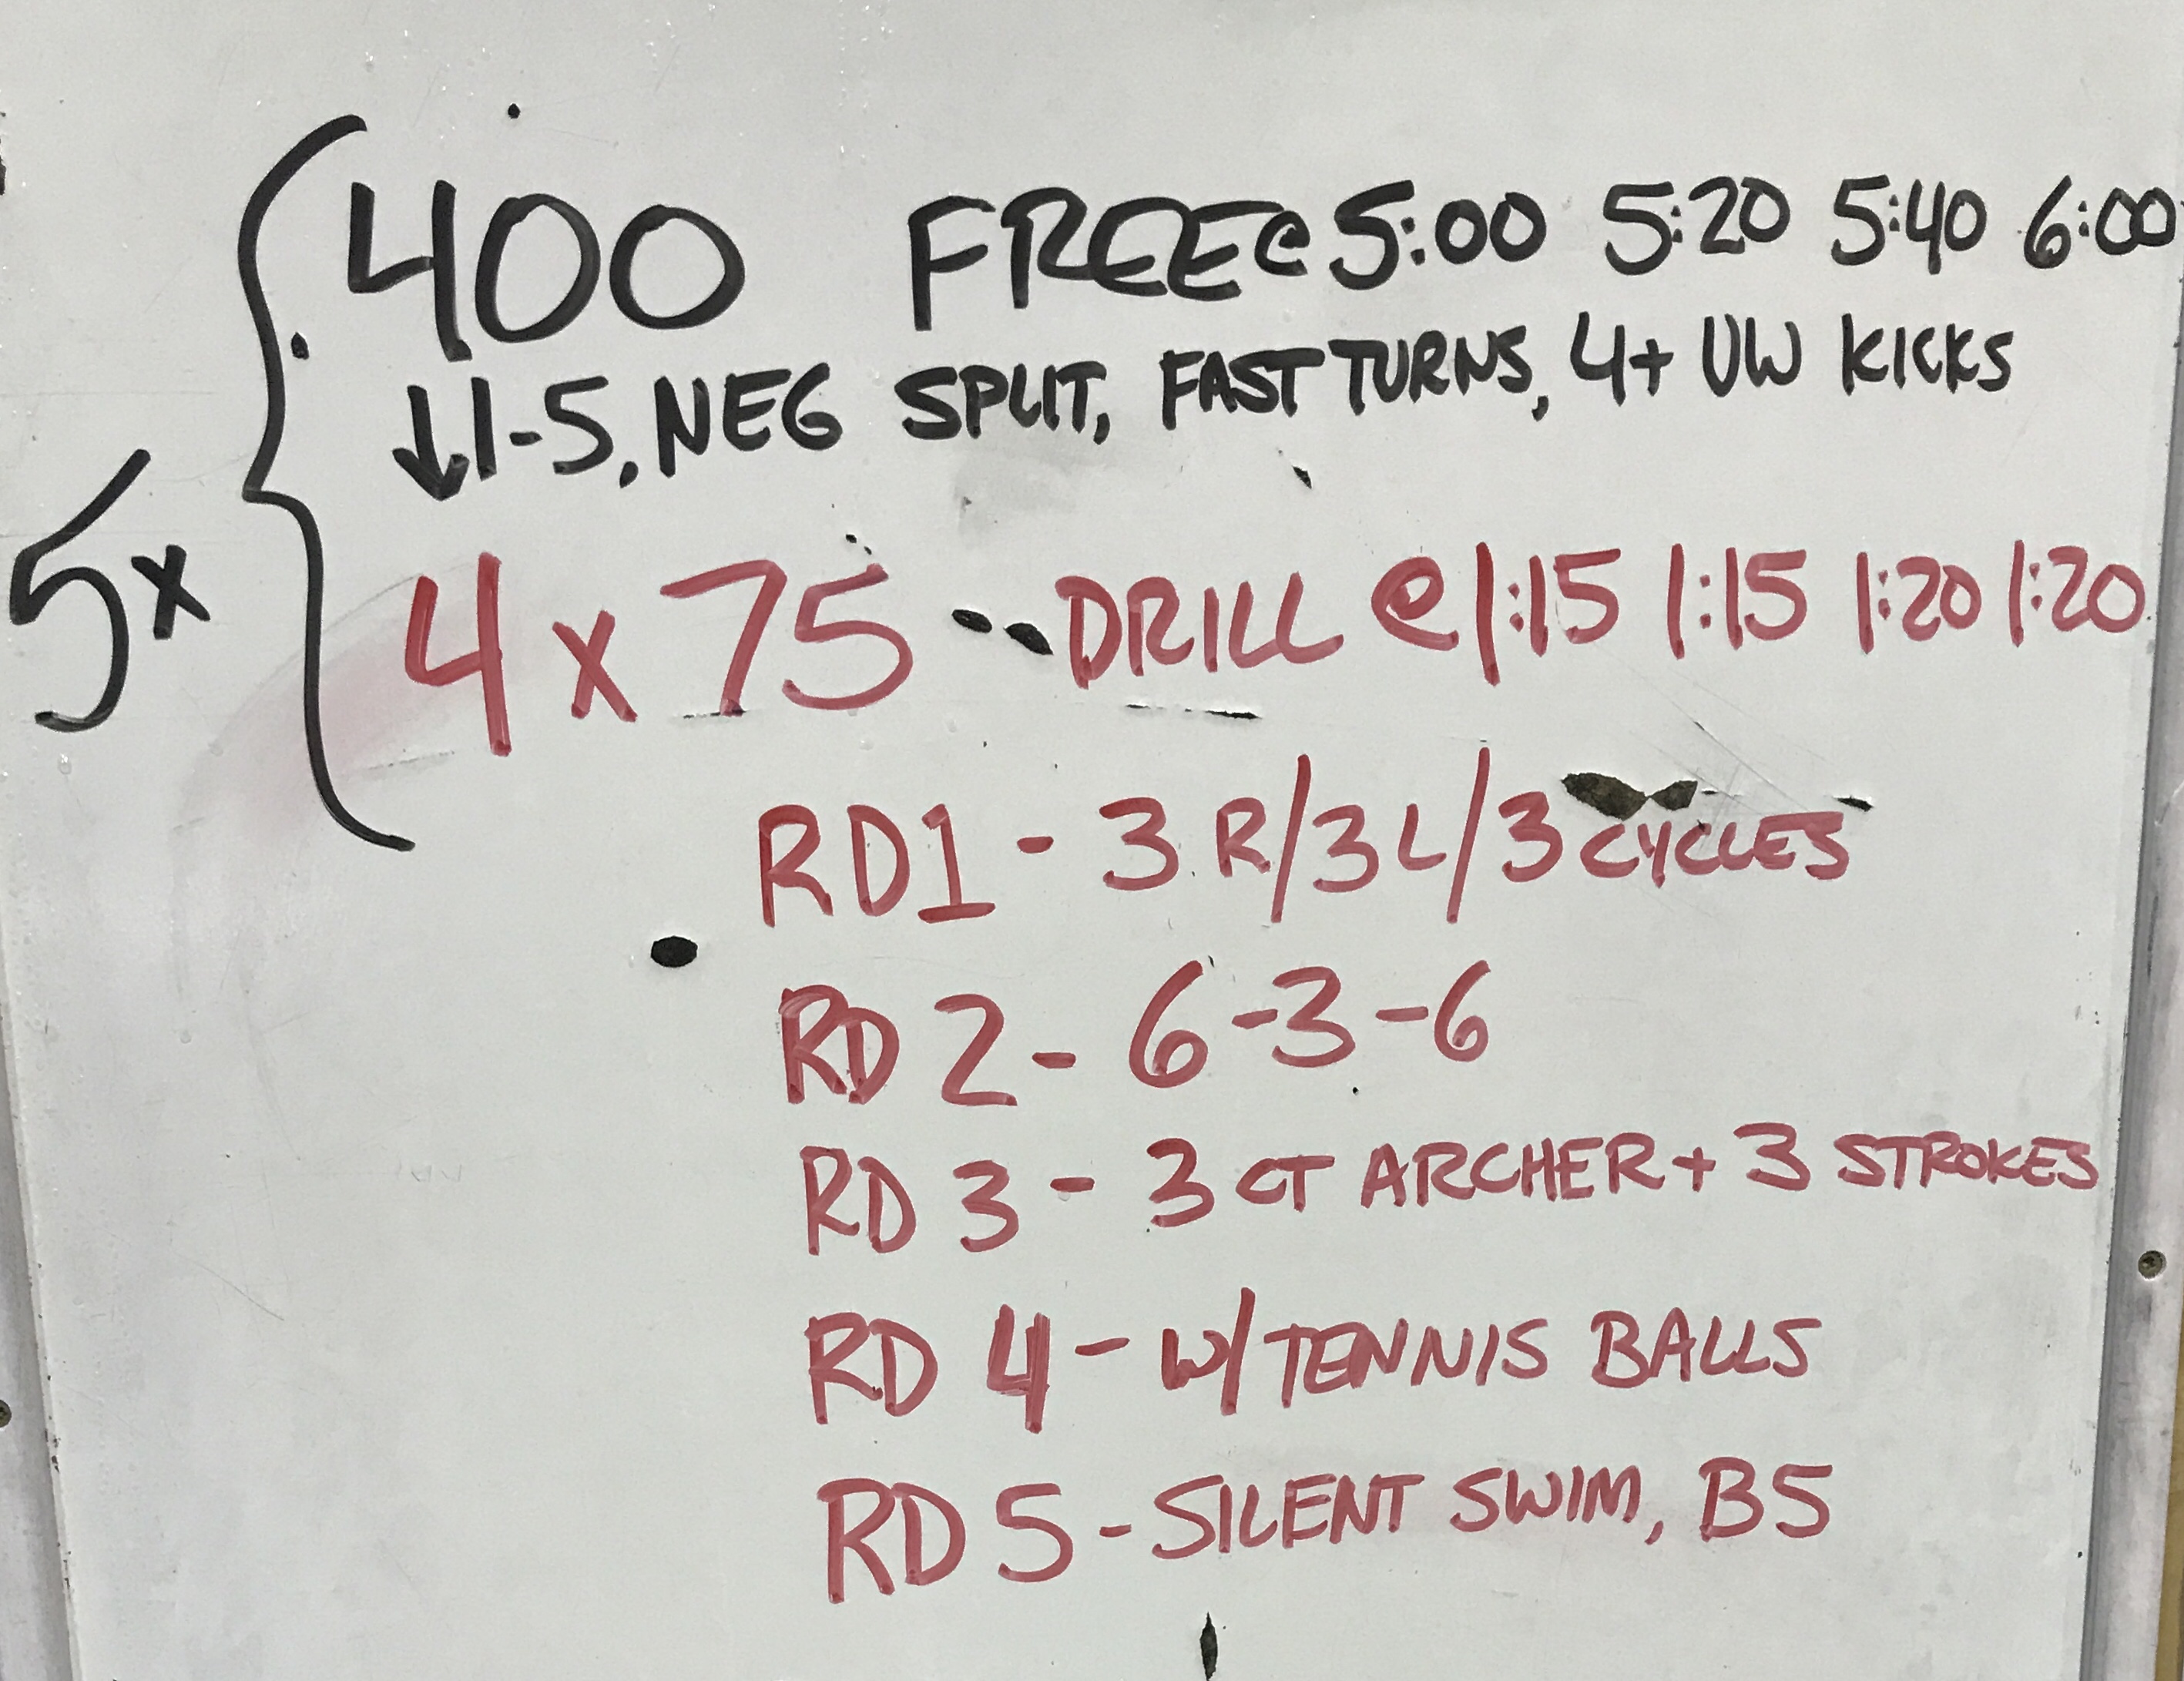 400 FREE @ 5:00 5:20 5:40 6:00
↓1-5, NEG SPLIT, FAST TURNS, 4+ UW KICKS
5x
4 x 75 DRILL @ 1:15 1:15 1:20 1:20
RD1 - 3 R/3 L/3 CYCLES
RD 2 - 6-3-6
RD 3 - 3 CT ARCHER + 3 STROKES
RD 4 - W/ TENNIS BALLS
RD 5 - SILENT SWIM, B5